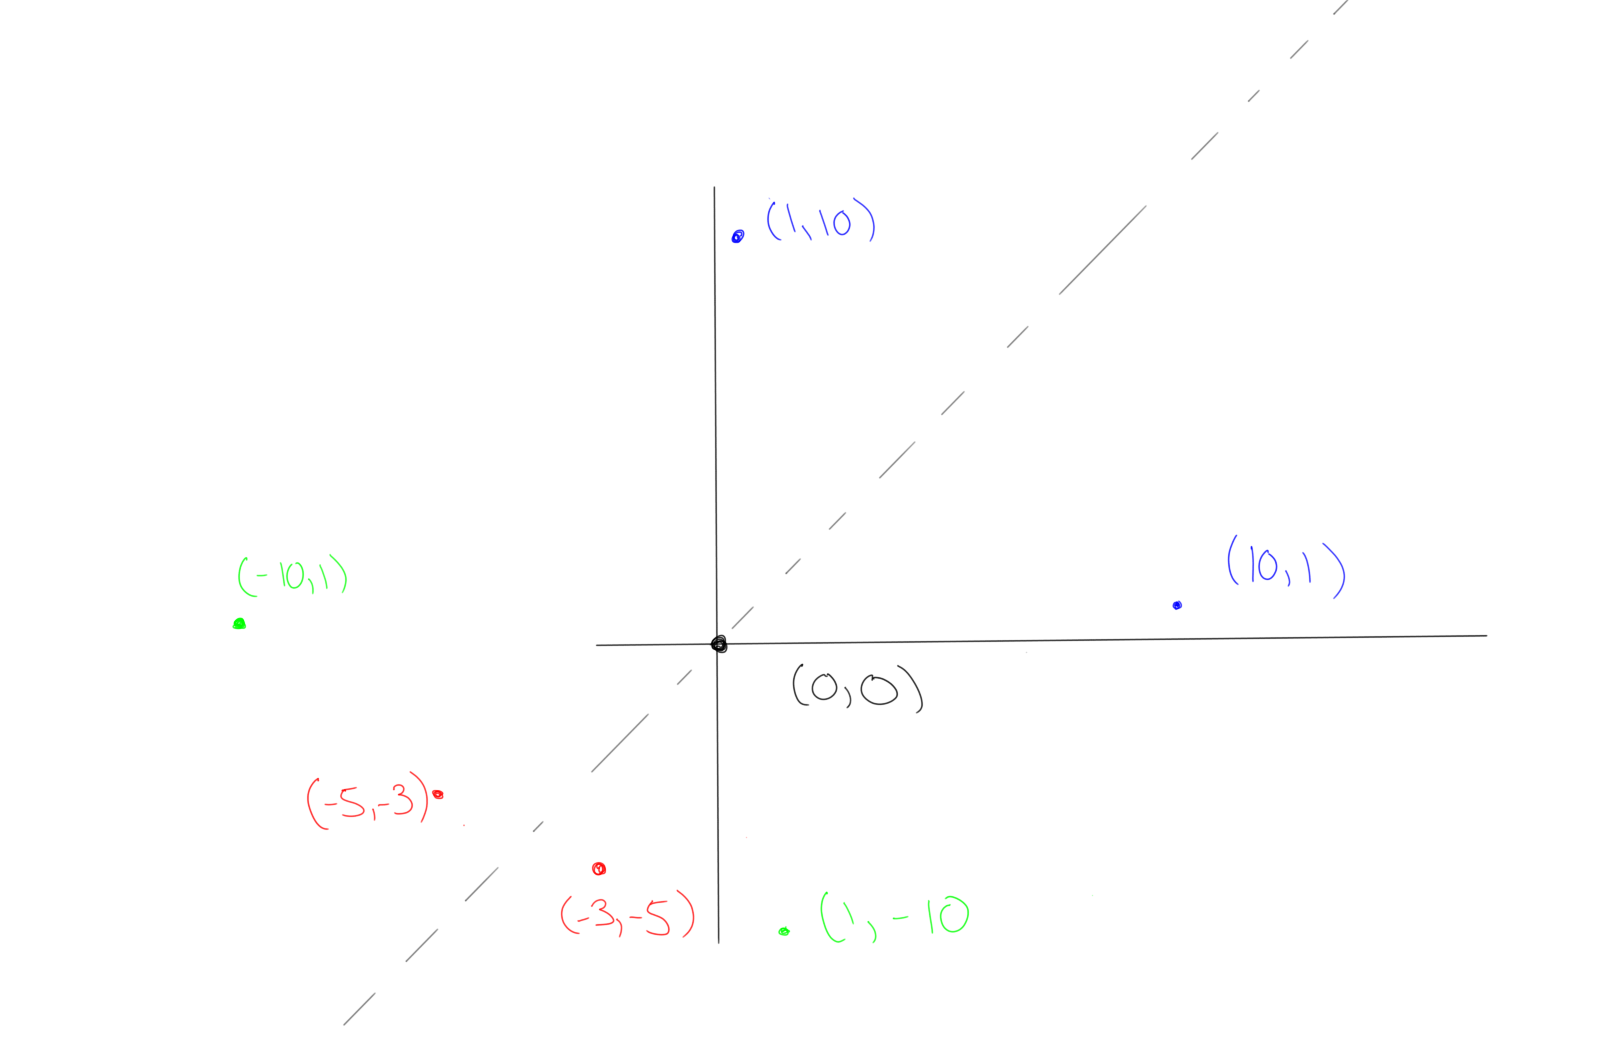 (1,10)
(10,1)
(-10,1)
(0,0)
(-5,-3)
(-3,-5)
(1,-10